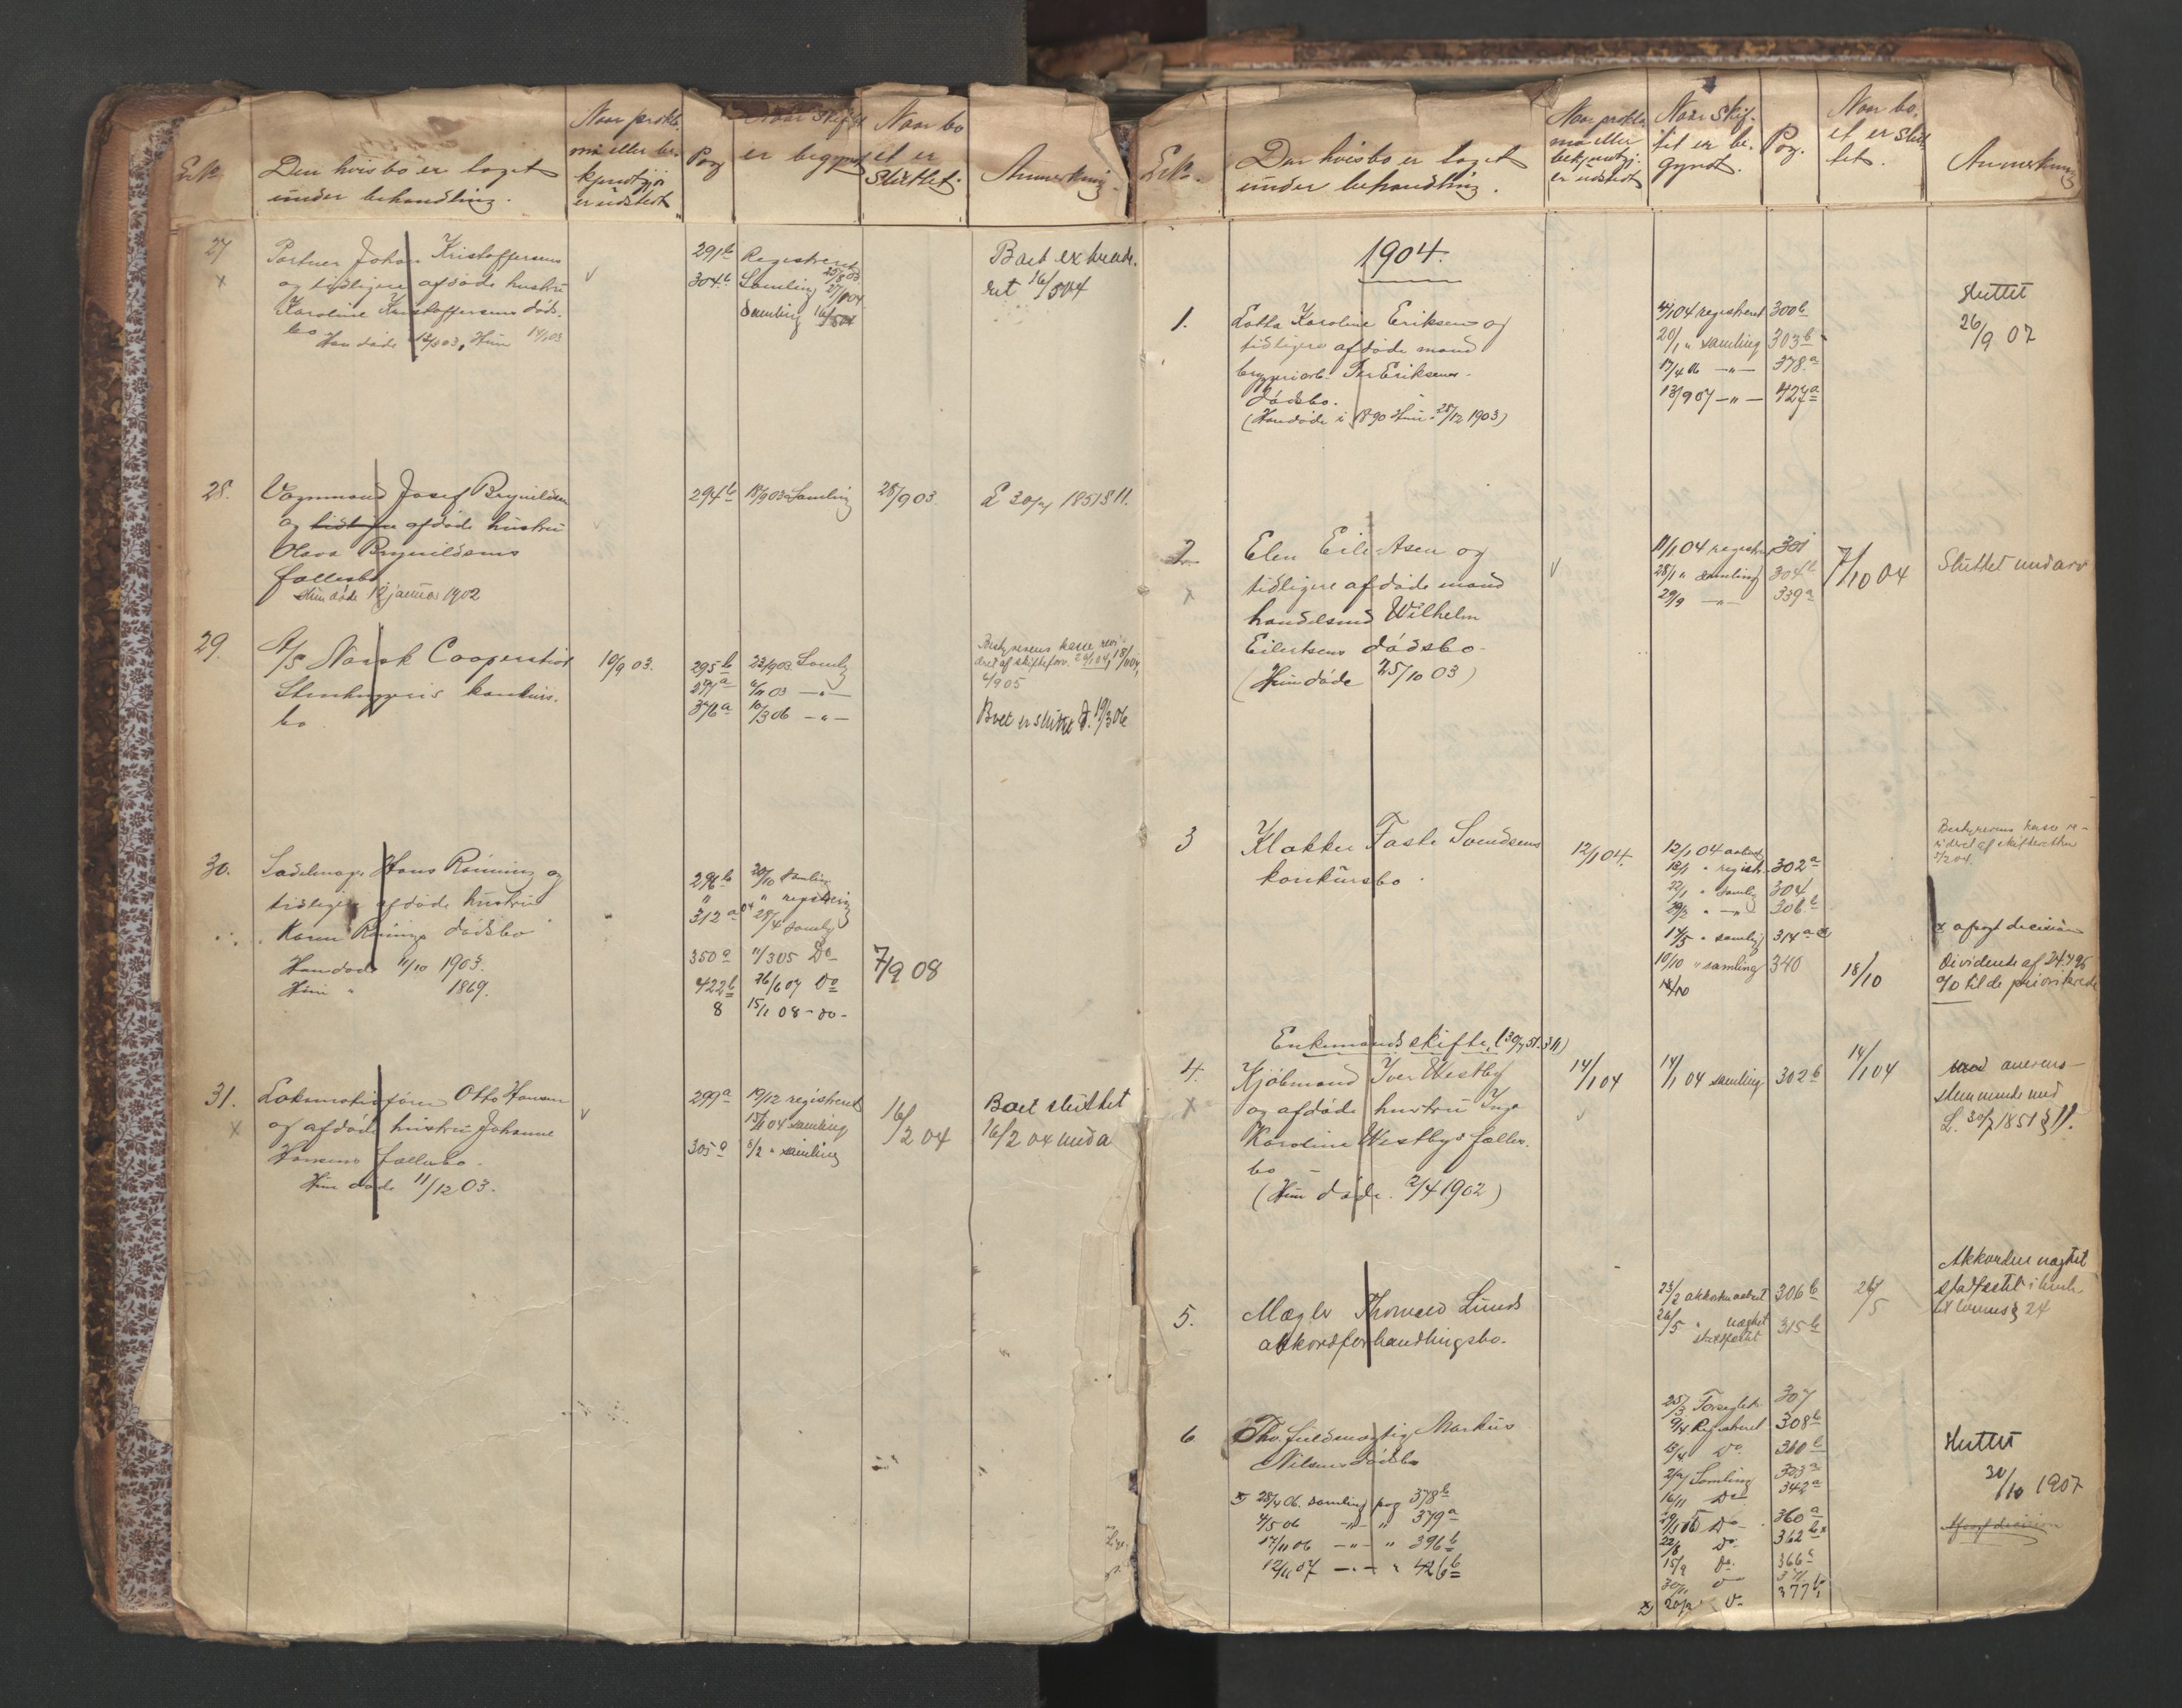 Den hvis bo er taget
under behandling.
Naar prokla-
ma eller be-
kjendtgj.
er udstedt
Pag
Naar skiftet
er begyndt
Naar bo
et er
sluttet.
Anmerkning.
27
Johan Kristoffersens
og tidligere afdøde hustru
Karoline Kristoffersens døds-
bo
Han døde 12/8 03, Hun
291b Registreret 25/8 03
304b Samling 27/1 04
Samling 16/5 04
Boet extrade-
ret 16/5 04
28.
Vognmand Josef Brynildsen
og tidligere afdøde hustru
Olava Brynildsens
fællesbo
Hun døde 12 januar 1902
294b 18/9 03 Samling
28/9 03.
L 30/7 1851 § 11.
29.
A/S Norsk Cooperativt
Stenhuggeris konkurs-
bo
10/9 03.
295b 23/9 03 Samling
297a 6/11 03 — " —
376a 10/3 06 — " —
Bestyrerens kasse revi-
deret af skifteforv.
6/9 05
Boet er sluttet d. 19/3 06
30.
Sadelmager Hans Rønning og
tidligere afdøde hustru
Karen Rønnings dødsbo
Han døde 11/10 1903.
Hun " 1869.
296b 20/10 Samling
" " registrering
312a 04 28/4 samling
350a 11/3 05 Do
422b 26/6 07 Do
8 15/1 08 - do -
7/9 08
31.
Lokomotivfører Otto Hansen
og afdøde hustru Johanne
Hansens fællesbo.
Hun døde 11/12 03.
299a 19/12 registreret
15/1 04 samling
305a 8/2 " samling
16/2 04
Boet sluttet
16/2 04 med a
Den hvis bo er taget
under behandling.
Naar prokla-
ma eller
bekjendtgj.
er udstedt
Naar skif-
tet er be-
gyndt.
Pag.
Naar bo-
et er slut-
tet.
Anmerkning
1904.
1.
Lotta Karoline Eriksen og
tidligere afdøde mand
bryggeriarb. Per Eriksens
dødsbo.
(Han døde i 1890 Hun 28/12 1903)
4/1 04 registreret 300b
20/1 " samling 303b
17/4 06 — " — 378a
13/9 07 — " — 427a
sluttet
26/9 07
2
x
Elen Eilertsen og
tidligere afdøde mand
handelsmd Wilhelm
Eilertsens dødsbo
(Hun døde 25/10 03)
11/1 04 registr. 301
28/1 " samling 304b
29/9 — " — 339a
7/10 04
Sluttet med arv
3
Klokker Faste Svendsens
konkursbo
12/1 04.
12/1 04 aabnet
18/1 " registr. 302a
22/1 " samlg 304
29/2 " — " — 306b
14/5 " samlg 314a
10/10 " samling 340
18/10
18/10
Bestyrerens kasse re-
videret af skifteretten
x afsagt decision
Dividende af 24.796
o/o til de prioriterede
Enkemandsskifte, (30/7 51. § 11)
4.
x
Kjøbmand Iver Westby
og afdøde hustru Inga
Karoline Westbys fælles-
bo
(Hun døde. 2/4 1902)
14/1 04
14/1 04 samling 302b
14/1 04
med overens-
stemmende med
L. 30/7 1851 § 11.
5.
Mægler Thorvald Lunds
akkordforhandlingsbo.
23/2 akkordaabnet 306b
26/5 " nægtet 315b
stadfæstet
26/5
Akkorden nægtet
stadfæstet i henh.
til lovens § 24
6
Fho. fuldmægtig Markus
Nilsens dødsbo
x) 28/4 06. samling pag 378b
4/5 06 — " — " 379a
17/11 06 — " — " 396b
12/6 07 — " — " 426b
25/3 Forseglet 307
9/4 Registreret 308b
13/4 Do 310b
2/7 Samling 323a
16/11 Do 342a
Do 360a
22/8 Do 362b x
15/9 Do 366
30/11 Do 371
x) 20/2 Do 377b
sluttet
30/10 1907
Afsagt decision